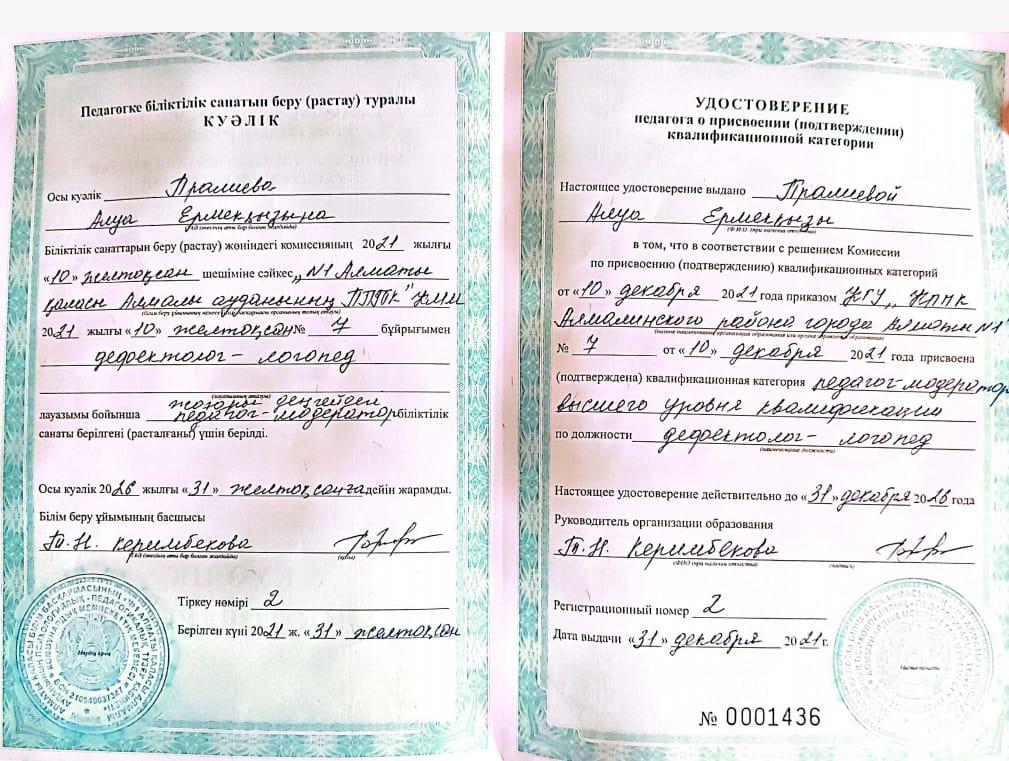 Педагогке біліктілік санатын беру (растау) туралы
КУӘЛІК
Осы куәлік Пралиева
Алуа Ермекқызына
Біліктілік санаттарын беру (растау) жөніндегі комиссияның 2021 жылғы
«10» желтоқсан шешіміне сәйкес „N1 Алматы
қаласы Алмалы ауданының ППТК" КММ
2021 жылғы «10» желтоқсан № 7 бұйрығымен
дефектолог - логопед
жоғары деңгейдегі
лауазымы бойынша педагог-модератор біліктілік
санаты берілгені (расталғаны) үшін берілді.
Осы куәлік 2026 жылғы «31» желтоқсанға дейін жарамды.
Білім беру ұйымының басшысы
Г.Н. Керимбекова
(қолы)
Тіркеу нөмірі 2
Берілген күні 2021 ж. «31» желтоқсан
УДОСТОВЕРЕНИЕ
педагога о присвоении (подтверждении)
квалификационной категории
Настоящее удостоверение выдано Пралиевой
Алуа Ермекқызы
(Ф.И.О (при наличии отчества)
в том, что в соответствии с решением Комиссии
по присвоению (подтверждению) квалификационных категорий
от «10» декабря 2021 года приказом КГУ „КППК
Алмалинского района города Алматы N1"
№ 7 от «10» декабря 2021 года присвоена
(подтверждена) квалификационная категория педагог-модератор
высшего уровня квалификации
по должности дефектолог - логопед
(наименование должности)
Настоящее удостоверение действительно до «31» декабря 2026 года
Руководитель организации образования
Г.Н. Керимбекова
(ФИО (при наличии отчества) (подпись)
Регистрационный номер 2
Дата выдачи «31» декабря 2021 г.
№ 0001436